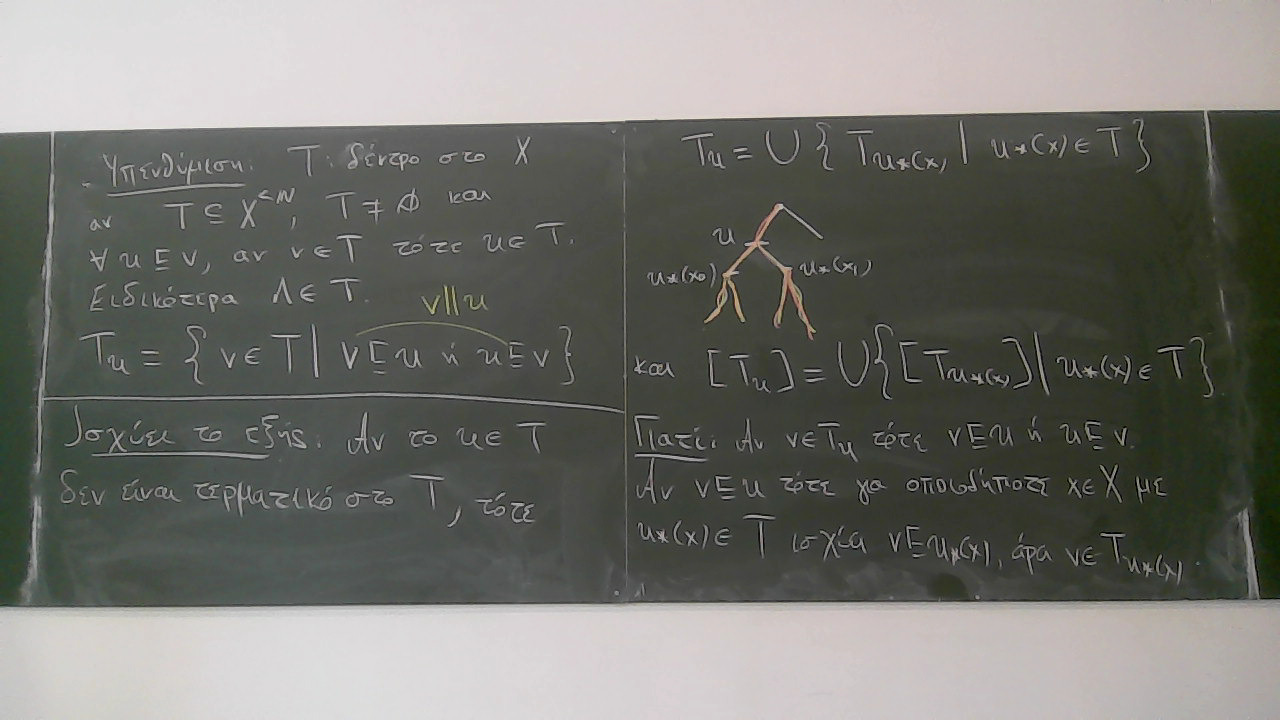 Υπενθύμιση. T: δέντρο στο X
αν T ⊆ X^{<ℕ}, T ≠ ∅ και
∀ u ⊑ v, αν v ∈ T τότε u ∈ T.
Ειδικότερα Λ ∈ T.
v∥u
T_u = { v ∈ T | v ⊑ u ή u ⊑ v }
Ισχύει το εξής. Αν το u ∈ T
δεν είναι τερματικό στο T, τότε
T_u = ∪{ T_{u*(x)} | u*(x) ∈ T }
u
u*(x₀) u*(x₁)
και [T_u] = ∪{ [T_{u*(x)}] | u*(x) ∈ T }
Γιατί: Αν v ∈ T_u τότε v ⊑ u ή u ⊑ v.
Αν v ⊑ u τότε για οποιοδήποτε x ∈ X με
u*(x) ∈ T ισχύει v ⊑ u*(x), άρα v ∈ T_{u*(x)}.